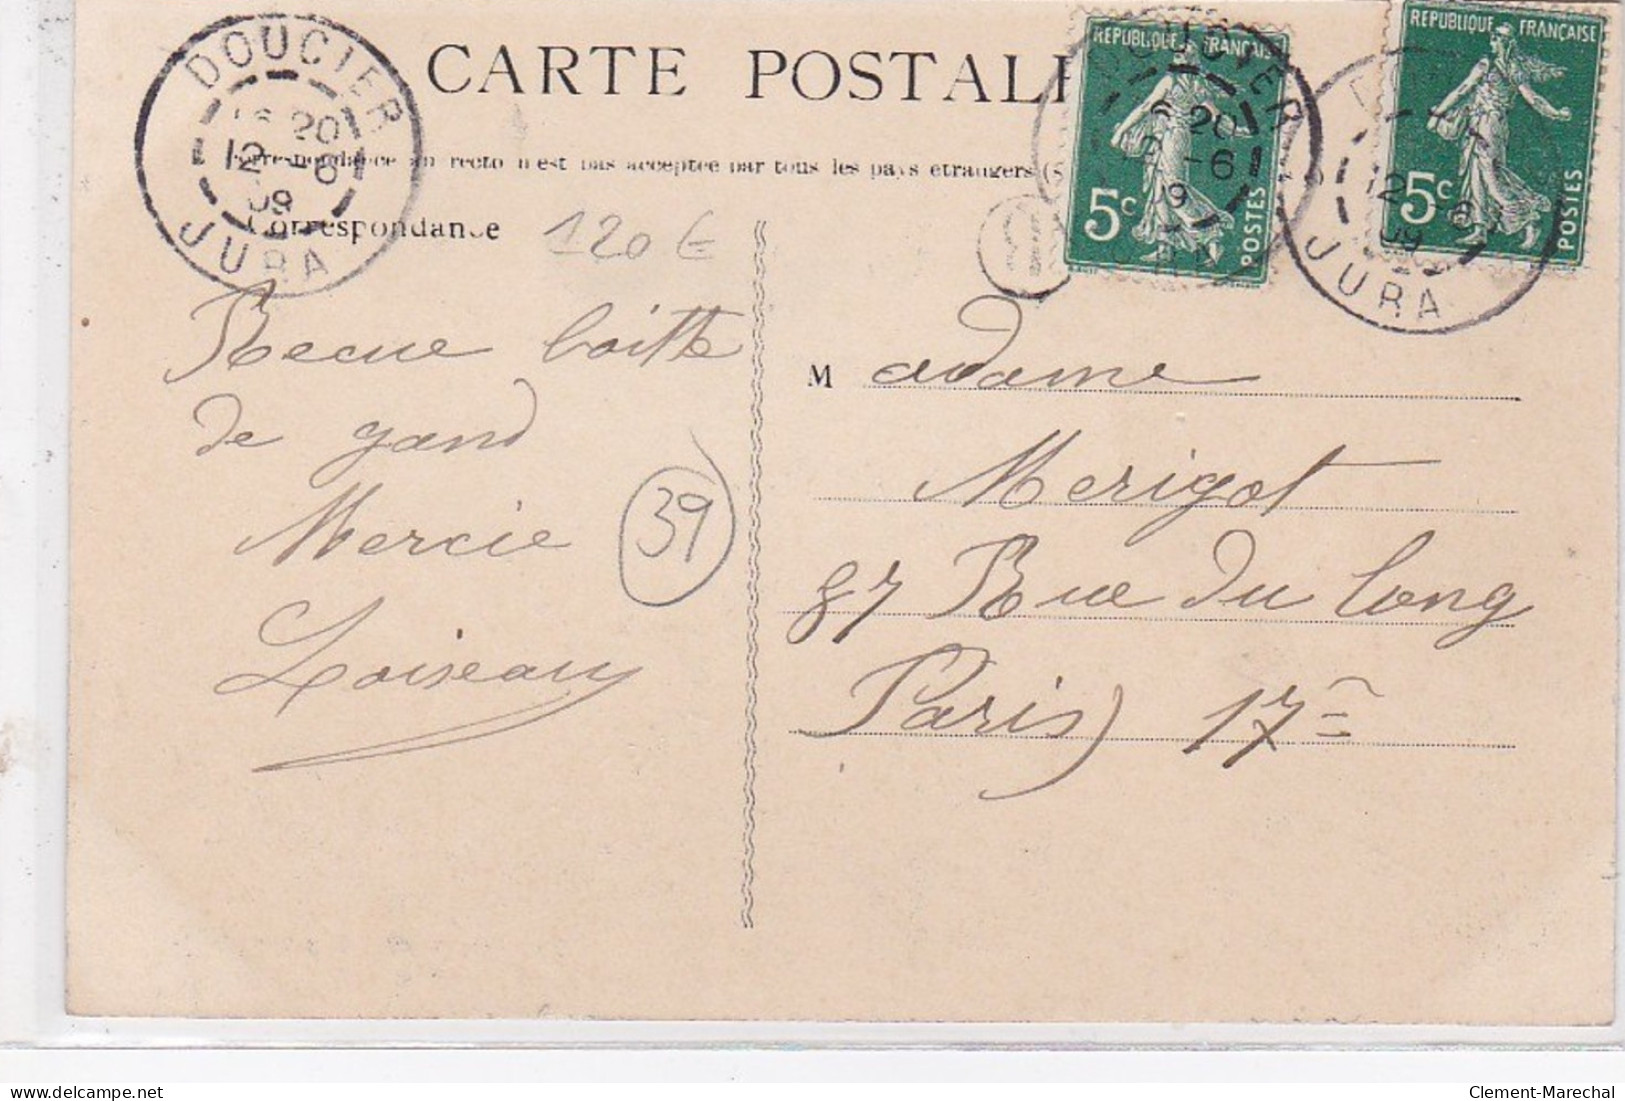 CARTE POSTALE
DOUCIER
20
12 -6
09
JURA
Correspondance au recto n'est pas acceptée par tous les pays étrangers (S
Correspondance
120 €
REPUBLIQUE FRANÇAISE
5c
POSTES
DOUCIER
20
-6
09
REPUBLIQUE FRANÇAISE
5c
POSTES
12
09
JURA
Recue boitte
de gand
Mercie
Loiseau
39
M adame
Merigot
87 Rue du Long
Paris) 17e
Clement-Marechal